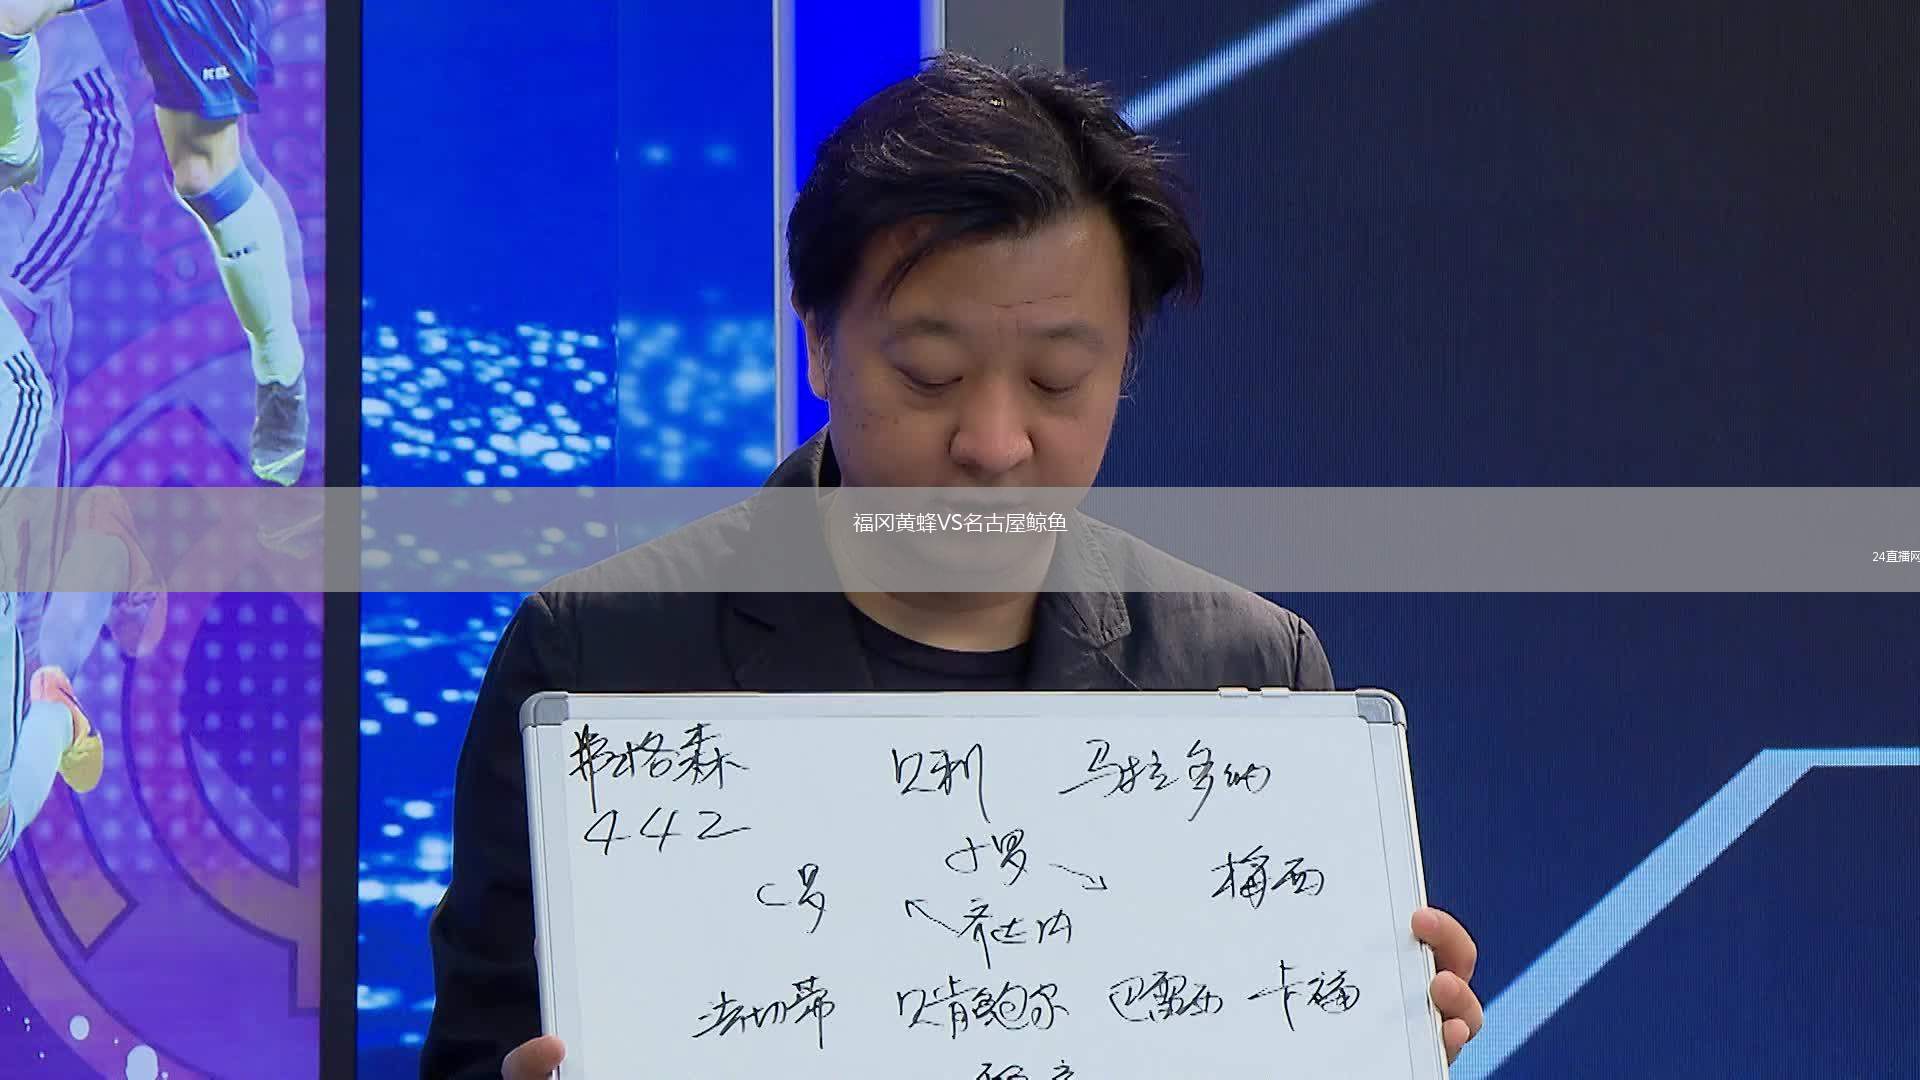 福冈黄蜂VS名古屋鲸鱼
24直播网
弗格森 贝利 马拉多纳
442
大罗
C罗 梅西
齐达内
法切蒂 贝肯鲍尔 巴雷西 卡福